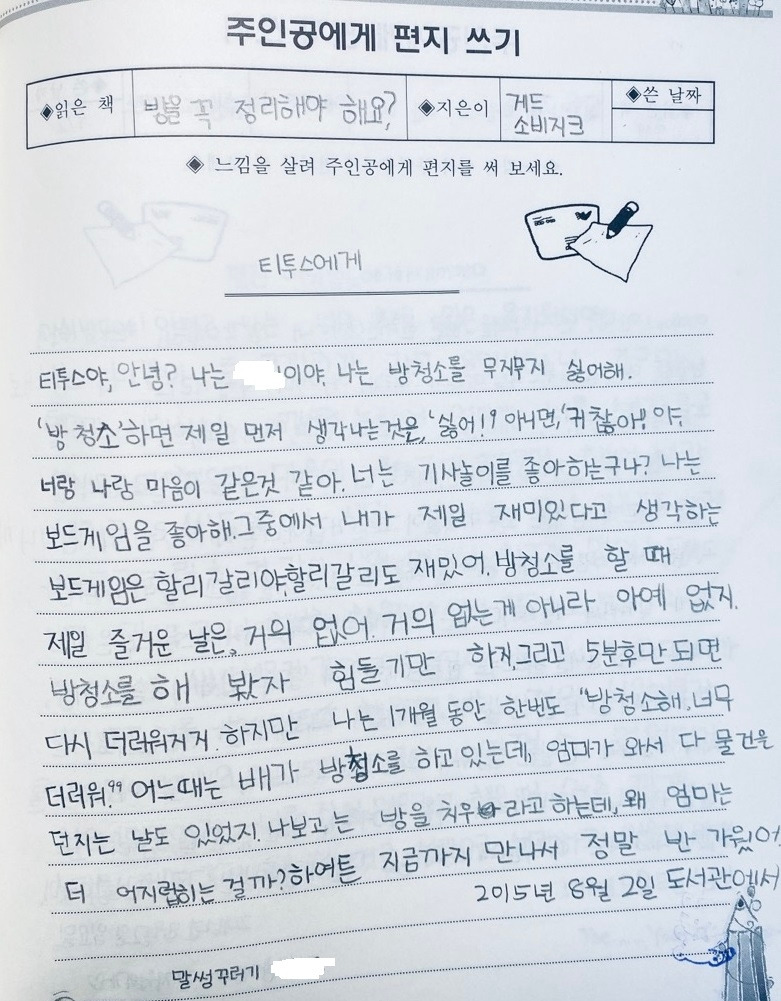 주인공에게 편지 쓰기
◈읽은 책 방을 꼭 정리해야 해요? ◈지은이 게르트 소비지크 ◈쓴 날짜
◈ 느낌을 살려 주인공에게 편지를 써 보세요.
티투스에게
티투스야, 안녕? 나는 이야. 나는 방청소를 무지무지 싫어해.
'방청소'하면 제일 먼저 생각나는것은, '싫어!' 아니면, '귀찮아!' 야.
너랑 나랑 마음이 같은것 같아. 너는 기사놀이를 좋아하는구나? 나는
보드게임을 좋아해. 그중에서 내가 제일 재미있다고 생각하는
보드게임은 할리갈리야. 할리갈리도 재밌어. 방청소를 할 때
제일 즐거운 날은, 거의 없어. 거의 없는게 아니라 아예 없지.
방청소를 해 봤자 힘들기만 하지, 그리고 5분후만 되면
다시 더러워지거. 하지만 나는 1개월 동안 한번도 "방청소해, 너무
더러워." 어느때는 내가 방청소를 하고 있는데, 엄마가 와서 다 물건은
던지는 날도 있었지. 나보고는 방을 치우라고 하는데, 왜 엄마는
더 어지럽히는 걸까? 하여튼 지금까지 만나서 정말 반가웠어
2015년 8월 2일 도서관에서
말썽꾸러기